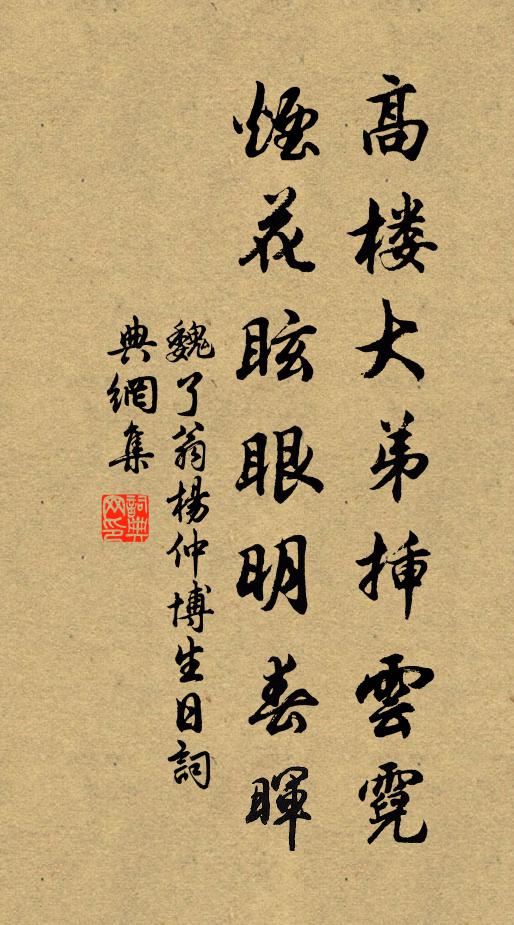 高楼大弟揷雲霓
煙花眩眼明春暉
魏了翁楊仲博生日詞
典網集
詞典網印